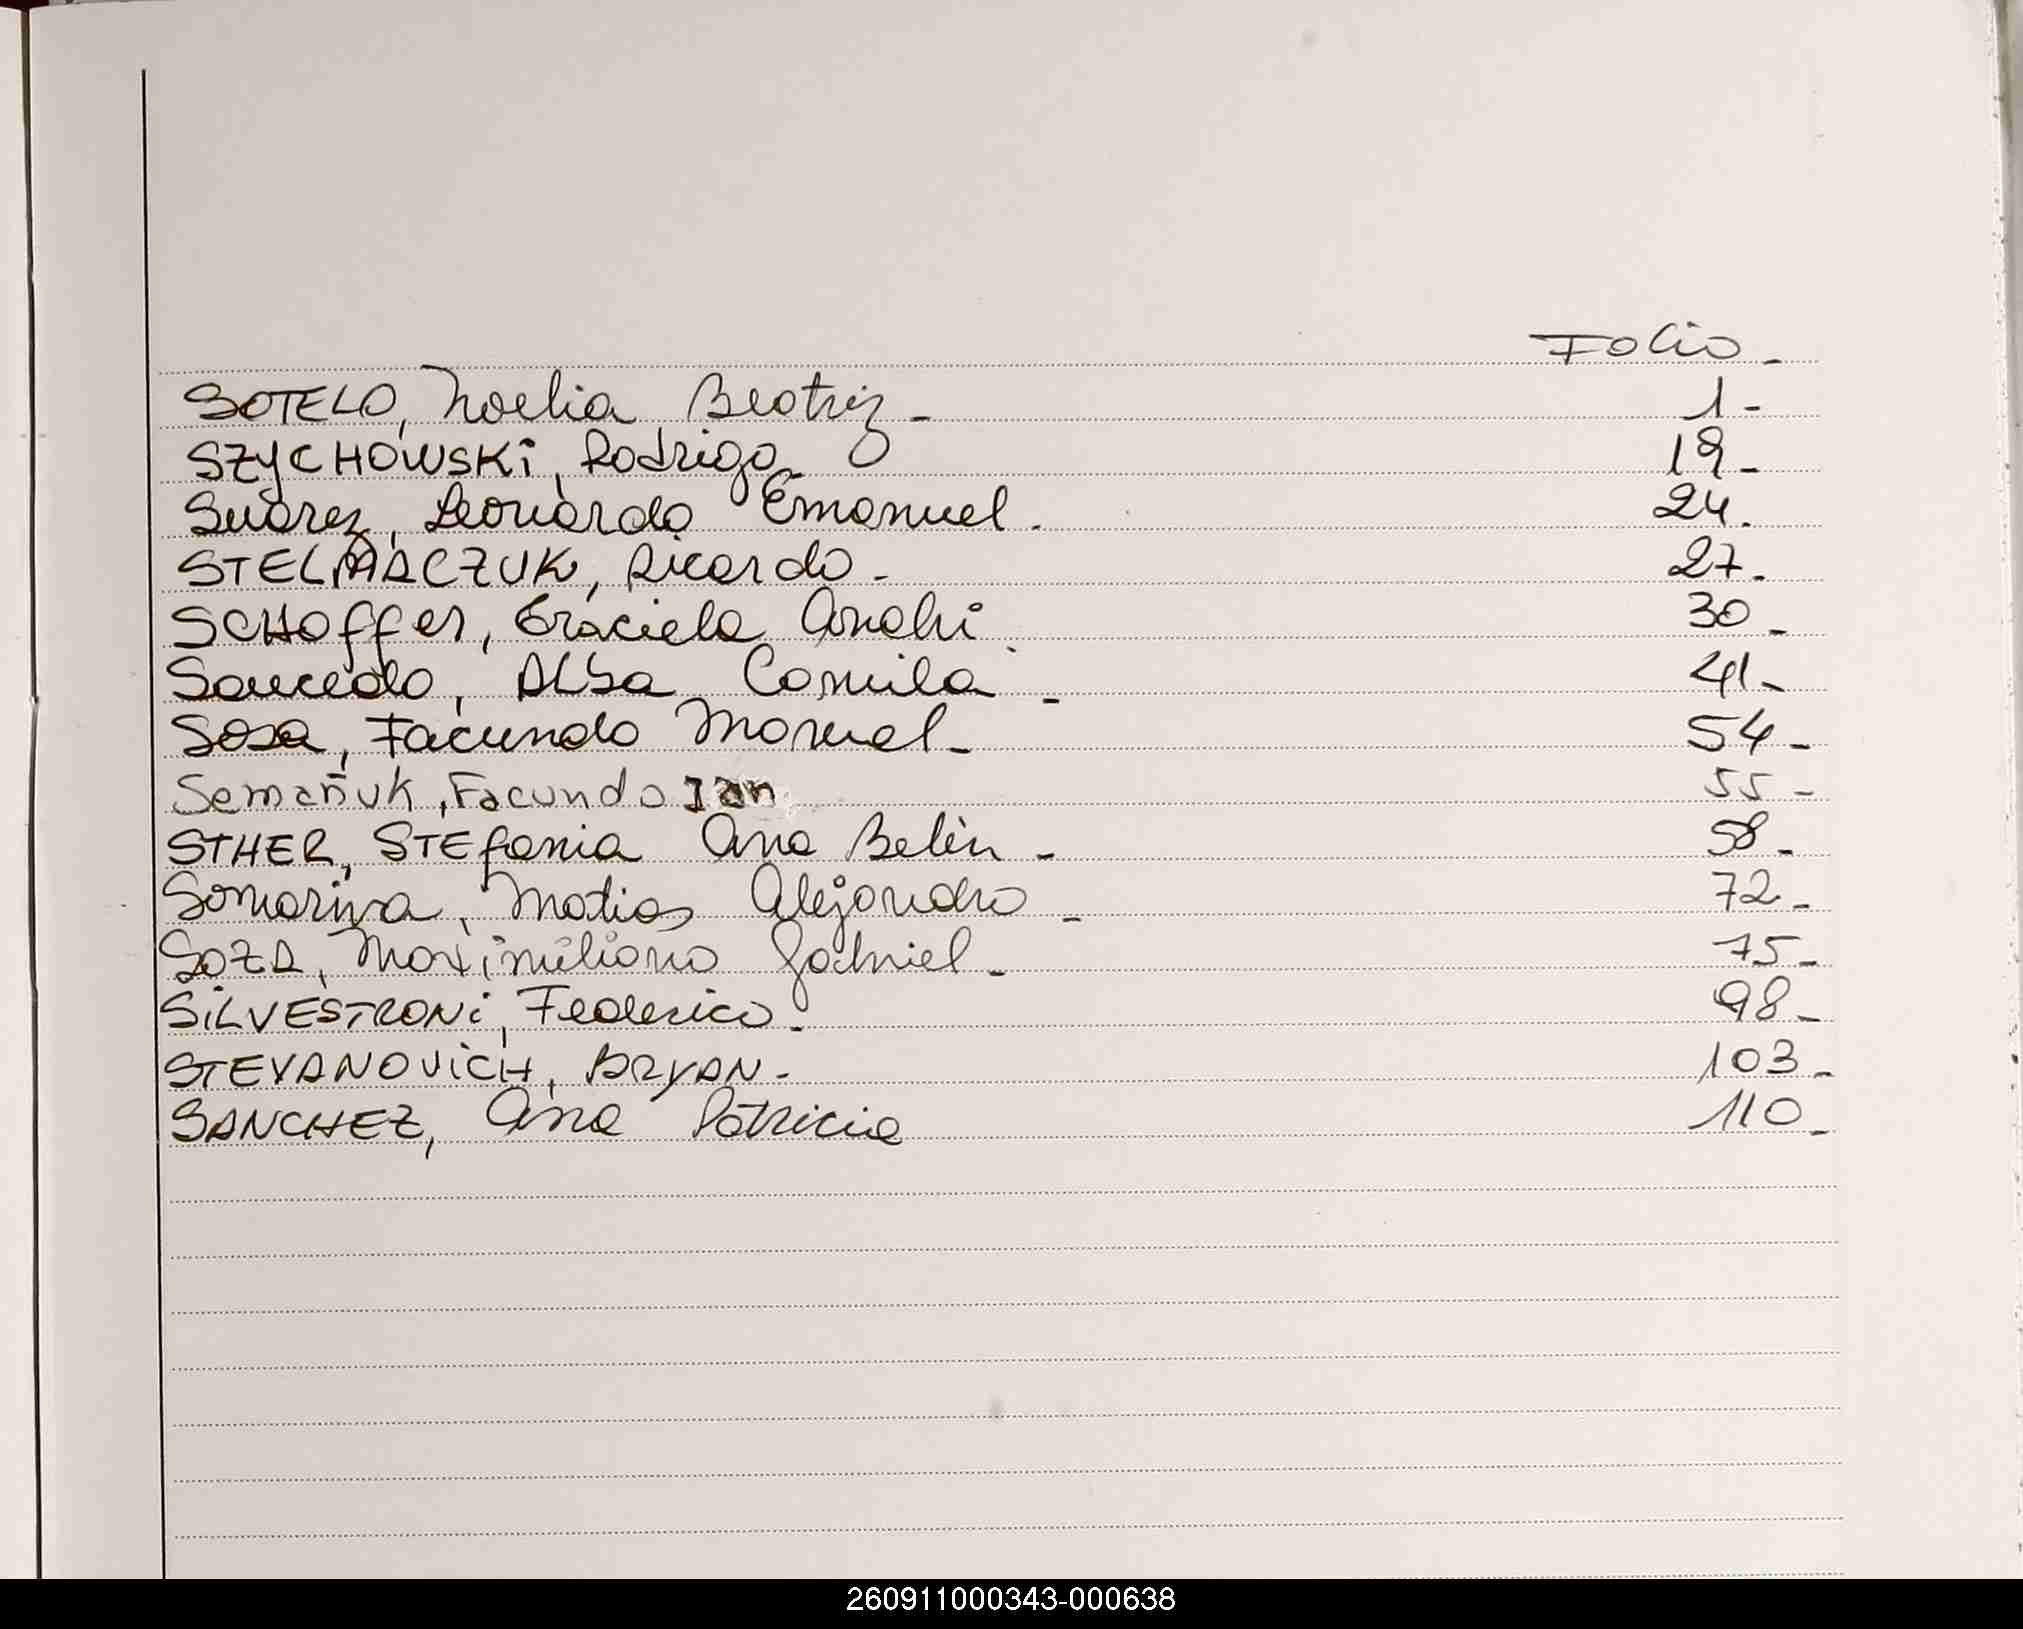 Folio -
SOTELO, Noelia Beatriz - 1 -
SZYCHOWSKi, Rodrigo - 19 -
Suárez, Leonardo Emanuel. 24.
STELMACZUK, Ricardo - 27.
SCHOffer, Graciela Anahi. 30 -
Saucedo, Alba Camila - 41 -
Sosa, Facundo Manuel - 54 -
Semañuk, Facundo Ian 55 -
STHER, STEfania Ana Belén - 58 -
Somariva, Matias Alejandro - 72 -
SOZA, Maximiliano Gabriel - 75 -
SiLVESTRONi, Federico - 98 -
STEVANOViCH, BRYAN - 103 -
SANCHEZ, Ana Patricia 110 -
260911000343-000638